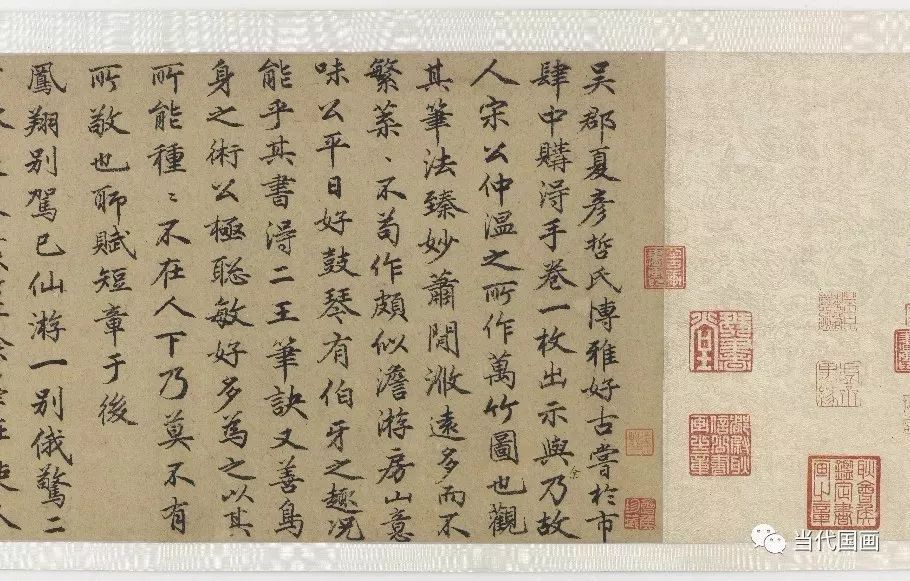 吳郡夏彦哲氏博雅好古嘗於市
肆中購淂手卷一枚出示與余乃故
人宋公仲溫之所作萬竹圖也觀
其筆法臻妙蕭閒遠多而不
繁、不苟作頗似澹游房山意
味公平日好鼓琴有伯牙之趣况
能乎其書淂二王筆訣又善
身之術公極聡敏好多為之以其
所能種〻不在人下乃莫不有
所敬也聊賦短章于後
鳳翔别駕已仙游一别俄驚二
耿會侯鑑定書畫之章
当代国画